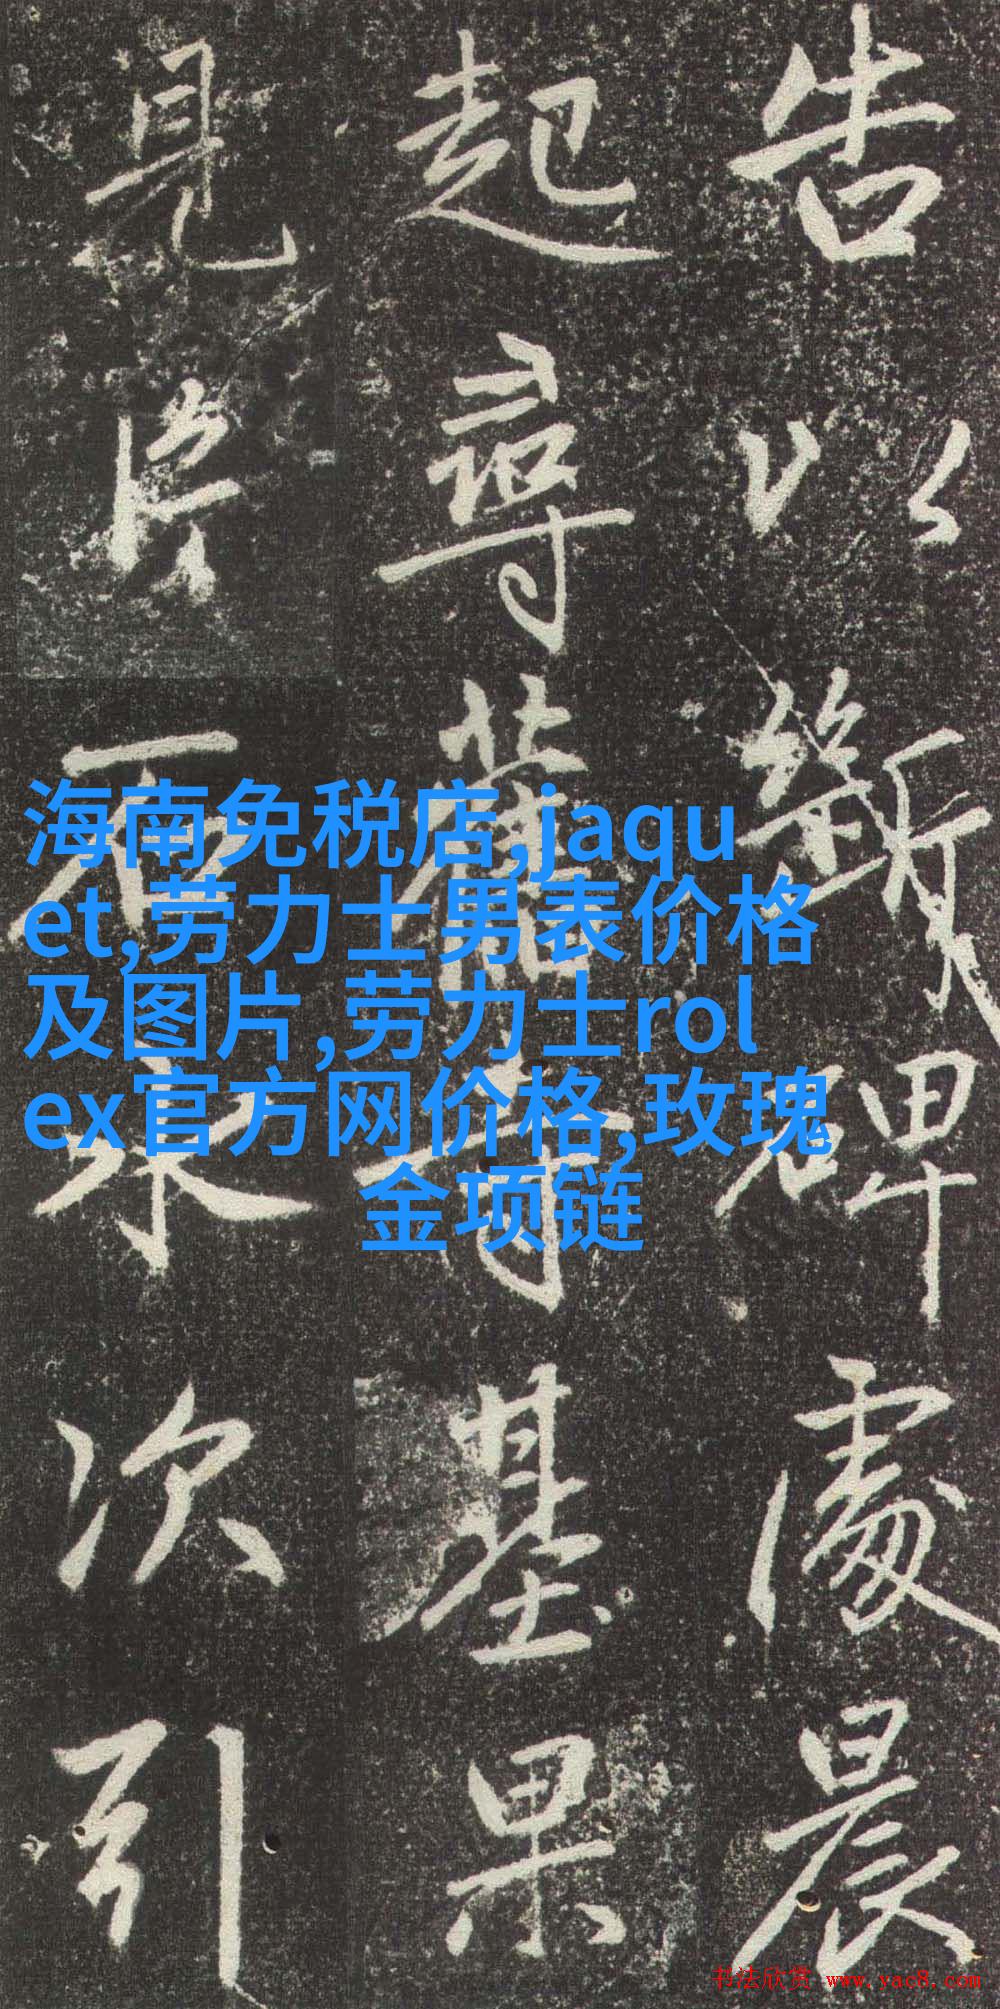 告以碑處晨
起尋舊寺基果
見次引
海南免税店,jaqu
et,劳力士男表价格
及图片,劳力士rol
ex官方网价格,玫瑰
金项链
书法欣赏 www.yac8.com